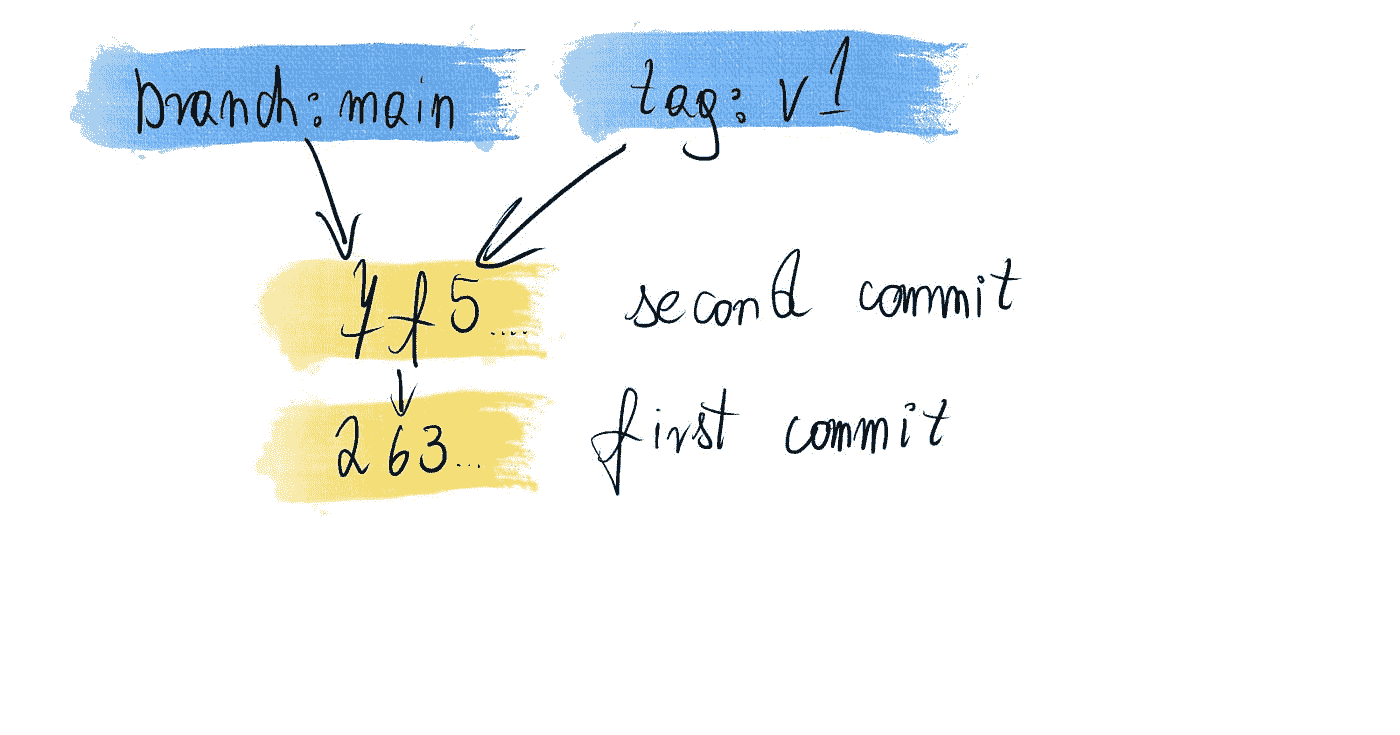 branch: main
tag: v1
7f5....
second commit
263...
first commit